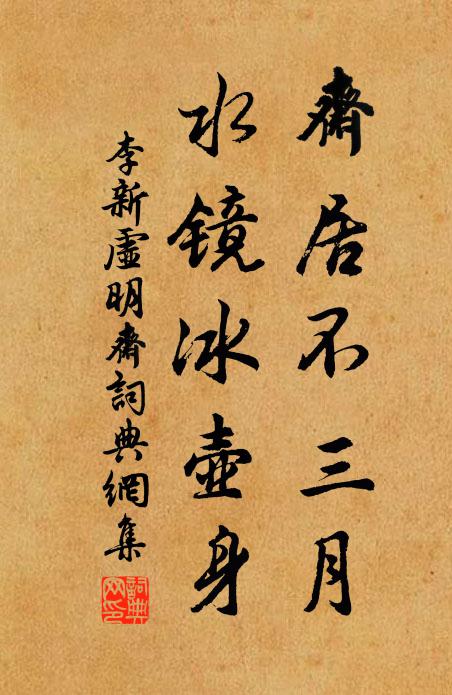 齋居不三月
水鏡冰壺身
李新虛明齋詞典網集
詞典網印